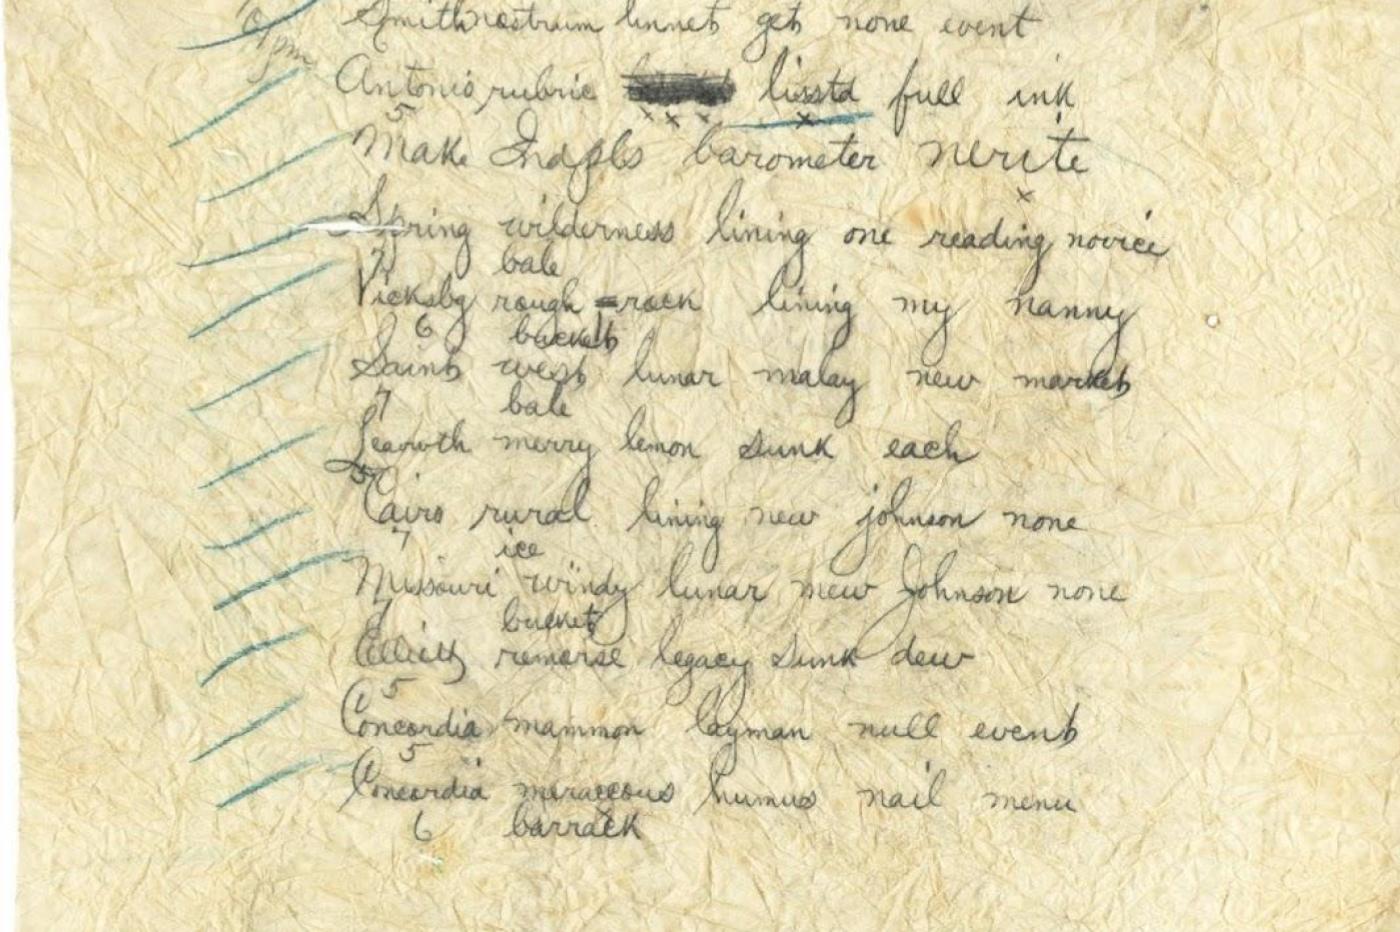 Smith nostrum linnet get none event
Antonio rubric lisstd full ink
5
Make Indpls barometer nerite
Spring wilderness lining one reading novice
7 bale
Vicksbg rough rack lining my nanny
6 bucket
Saint west lunar malay new market
7 bale
Leavwth merry lemon sunk each
5
Cairo rural lining new johnson none
7 ice
Missouri windy lunar mew Johnson none
7 bucket
Elliott remorse legacy sunk dew
5
Concordia mammon layman null event
5
Concordia meraccous humus nail menu
6 barrack